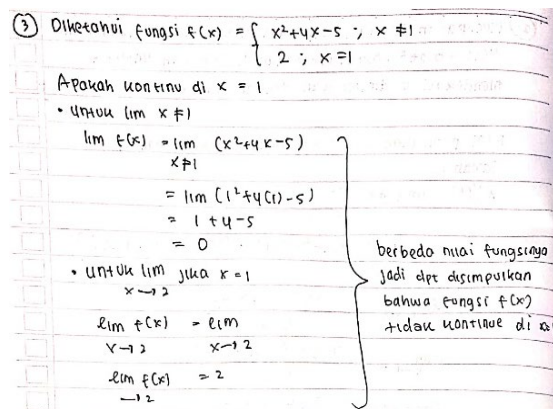 ③ Diketahui fungsi f(x) = { x²+4x-5 ; x ≠ 1
2 ; x = 1
Apakah kontinu di x = 1
• untuk lim x ≠ 1
lim f(x) = lim (x²+4x-5)
x ≠ 1
= lim (1²+4(1)-5)
= 1+4-5
= 0
• untuk lim jika x = 1
x → 2
lim f(x) = lim
x → 2 x → 2
lim f(x) = 2
→ 2
berbeda nilai fungsinya
jadi dpt disimpulkan
bahwa fungsi f(x)
tidak kontinue di